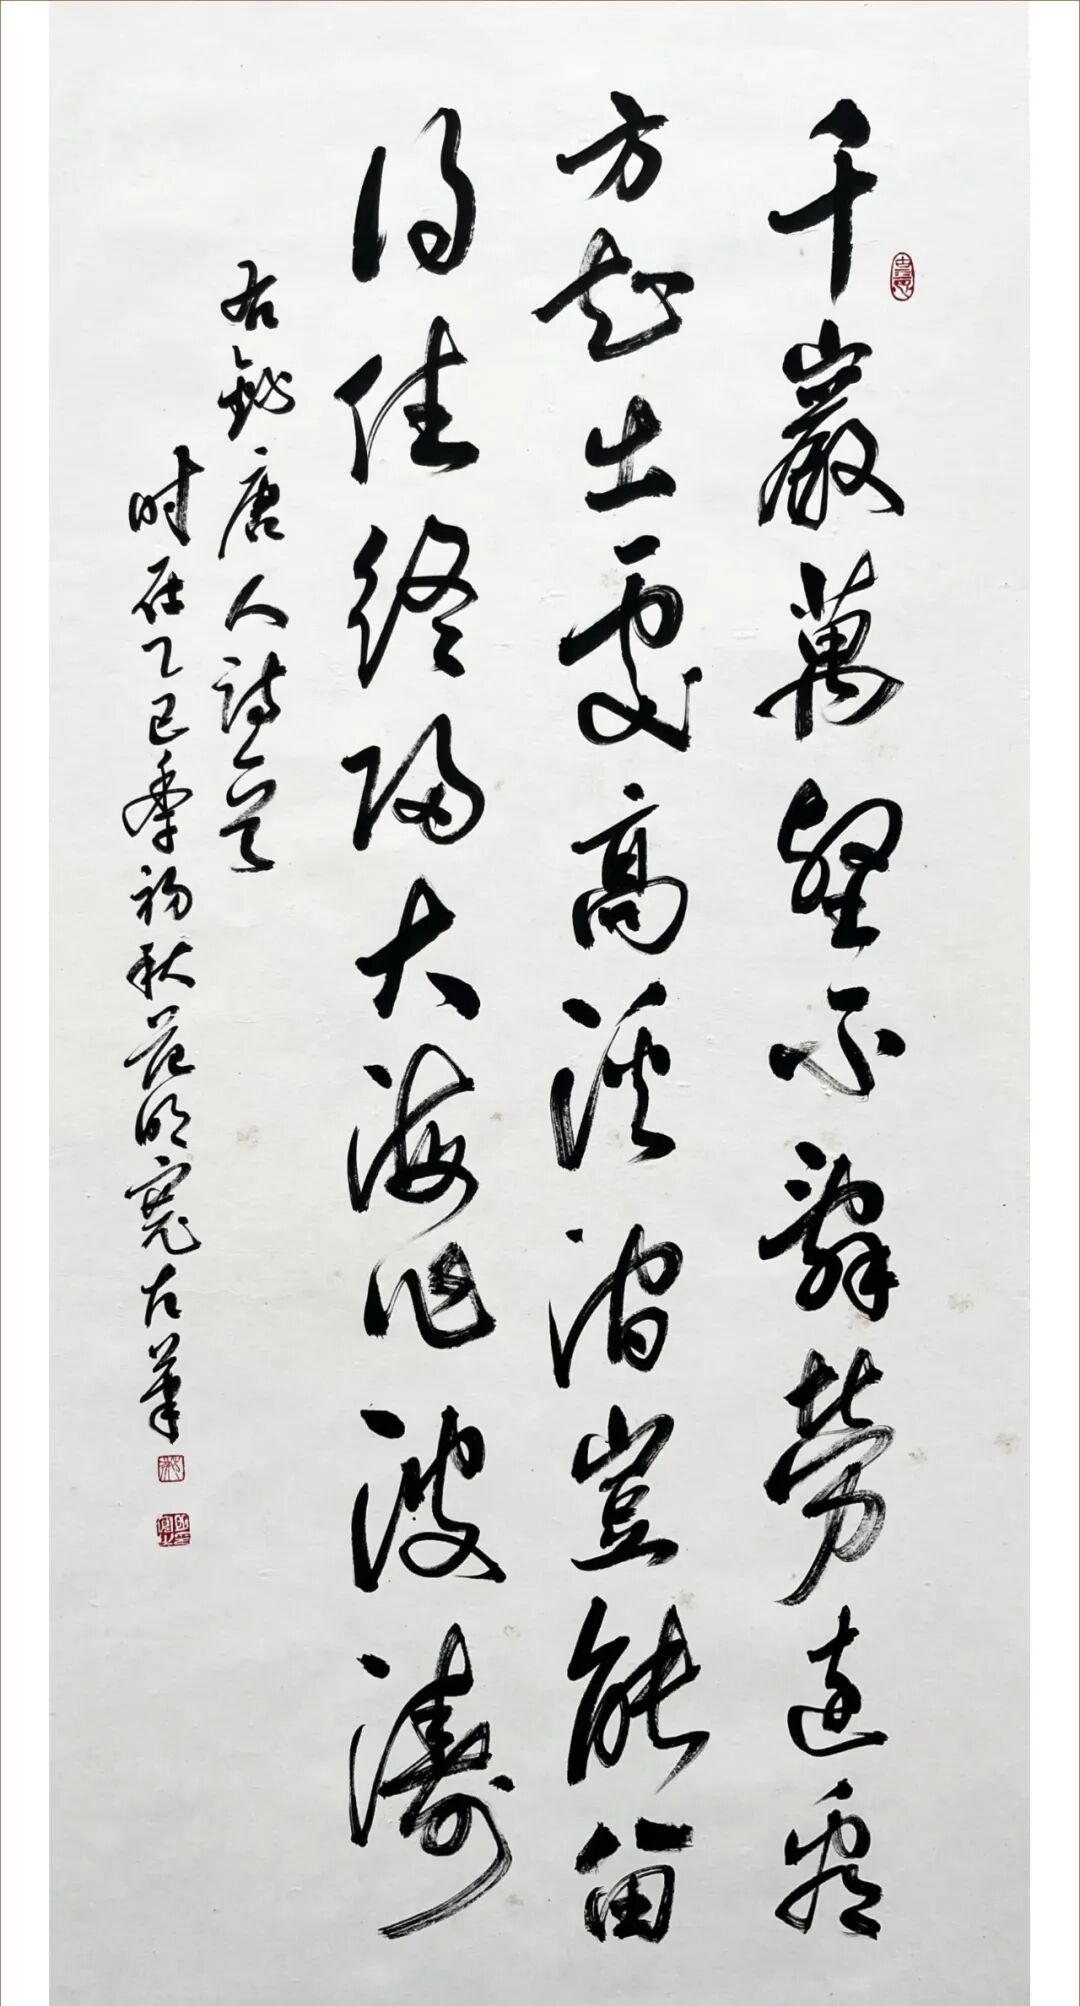 千巖萬壑不辭勞遠看
方知出處高溪澗豈能留
得住終歸大海作波濤
右錄唐人詩一首
时在乙巳秊初秋范明寬左筆